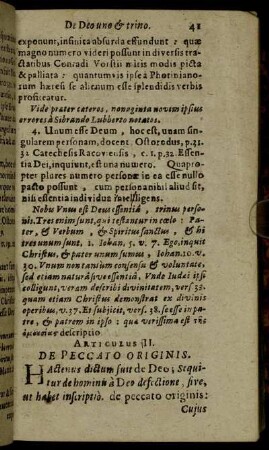 De Deo uno & trino. 41
exponunt, infinita absurda effundunt : quæ
magno numero videri possunt in diversis tra-
ctatibus Conradi Vorstii miris modis picta
& palliata : quantumvis ipse à Photinianorum
hæresi se alienum esse splendidis verbis
profiteatur.
Vide præter cæteros, nonaginta novem ipsius
errores à Sibrando Lubberto notatos.
4. Unum esse Deum, hoc est, unam sin-
gularem personam, docent Ostorodus, p. 31.
32 Catechesis Racoviensis, c. 1. p. 32. Essen-
tia Dei, inquiunt, est una numero. Quaprop-
ter plures numero personæ in ea esse nullo
pacto possunt, cum persona nihil aliud sit,
nisi essentia individua intelligens.
Nobis Unus est Deus essentiâ, trinus perso-
nis. Tres enim sunt, qui testantur in cælo: Pa-
ter, & Verbum, & Spiritus sanctus, & hi
tres unum sunt. 1. Iohan. 5. v. 7. Ego, inquit
Christus, & pater unum sumus, Iohan. 10. v.
30. Unum non tantùm consensu & voluntate,
sed etiam naturâ sive essentiâ. Unde Iudæi ips
colligunt, veram describi divinitatem, vers.
32. quam etiam Christus demonstrat ex divinis
operibus, v. 37. Et subjicit, vers. 38. se esse in pa-
tre, & patrem in ipso : quæ verissima est τῆς
ὁμοουσίας descriptio
ARTICULUS II.
DE PECCATO ORIGINIS.
HActenus dictum fuit de Deo; Sequi-
tur de hominis à Deo defectione, sive,
ut habet inscriptio. de peccato originis:
Cujus